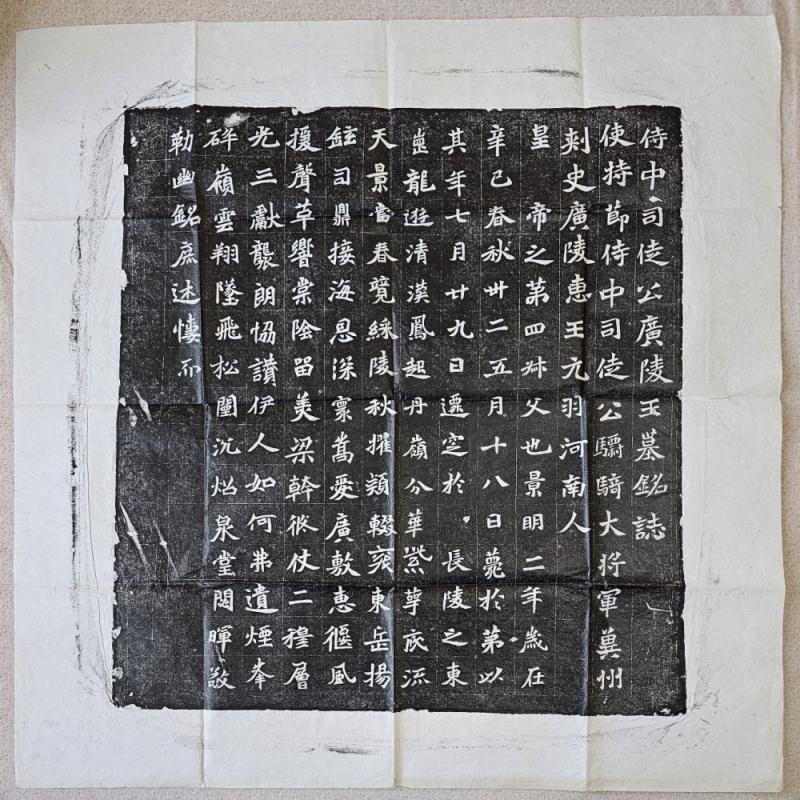 侍中司徒公廣陵王墓銘誌
使持節侍中司徒公驃騎大將軍冀州
刺史廣陵惠王元羽河南人
皇帝之第四叔父也景明二年歲在
辛巳春秋卅二五月十八日薨於第以
其年七月廿九日遷窆於長陵之東
崗龍遊清漢鳳起丹嶺分華紫萼底流
天景當春競綵陵秋擢穎輟袞東岳揚
鉉司鼎接海恩深稟嵩愛廣敷惠偃風
援聲革響棠陰留美梁幹徽仗二穆層
光三獻襲朗協讚伊人如何弗遺煙峯
碎嶺雲翔墜飛松闈沉炤泉堂閟暉敬
勒幽銘庶述悽而